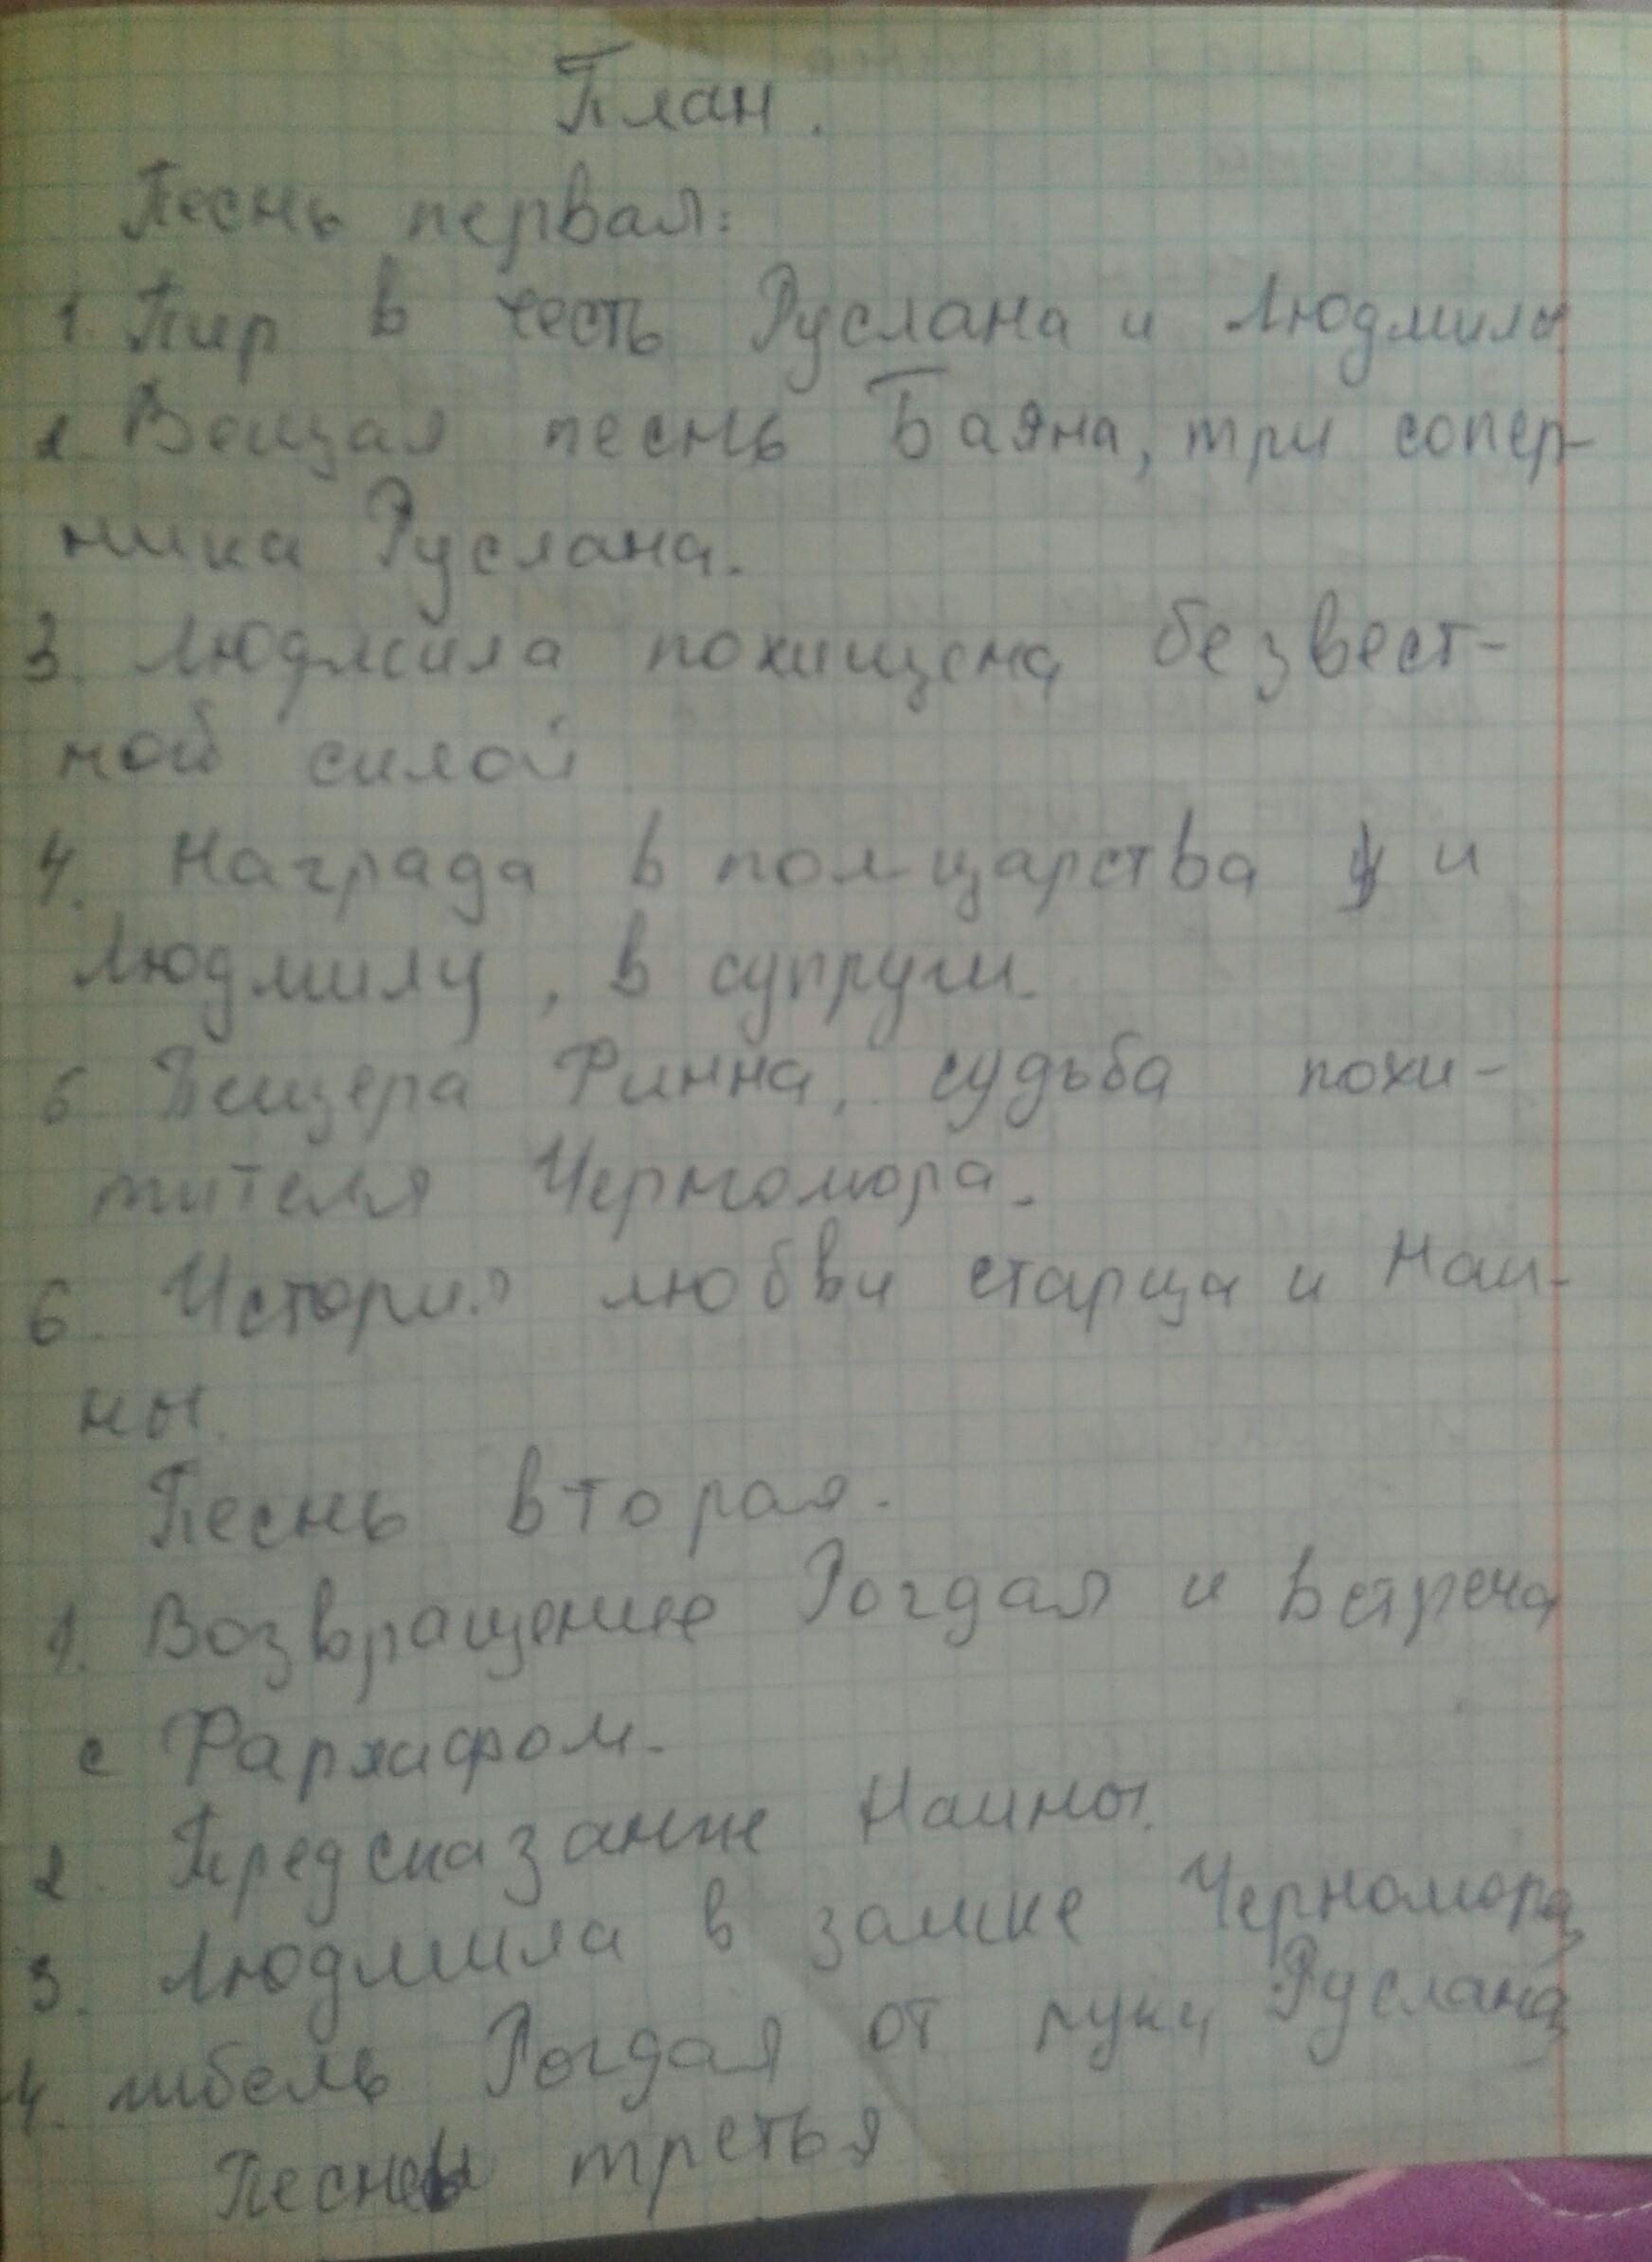 План.
Песнь первая:
1. Пир в честь Руслана и Людмилы
2. Вещая песнь Баяна, три сопер-
ника Руслана.
3. Людмила похищена безвест-
ной силой
4. Награда в пол-царства и
Людмилу, в супруги.
5 Пещера Финна, судьба похи-
тителя Черномора.
6. История любви старца и Наи-
ны.
Песнь вторая.
1. Возвращение Рогдая и встреча
с Фарлафом.
2. Предсказание Наины.
3. Людмила в замке Черномора
4. гибель Рогдая от руки Руслана
Песнь третья